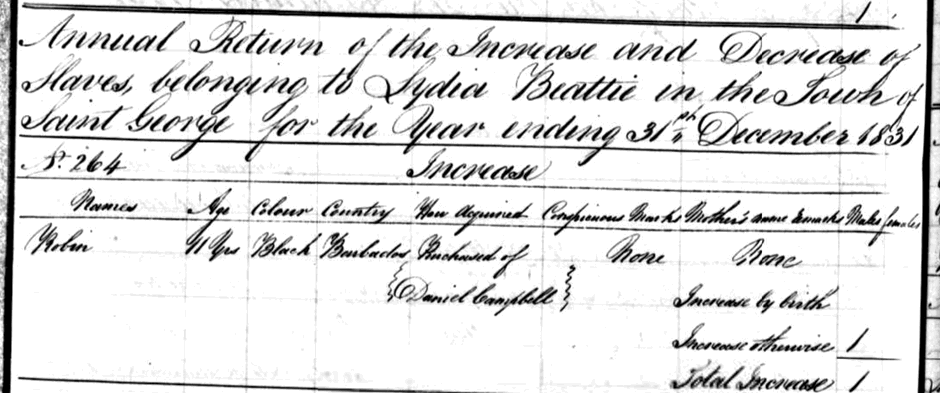 1
Annual Return of the Increase and Decrease of
Slaves, belonging to Lydia Beattie in the Town of
Saint George for the Year ending 31st December 1831
No. 264 Increase
Names Age Colour Country How Acquired Conspicuous Marks Mother's name Remarks Males females
Robin Yrs Black Barbados Purchased of None None
Daniel Campbell Increase by birth
Increase otherwise 1
Total Increase 1